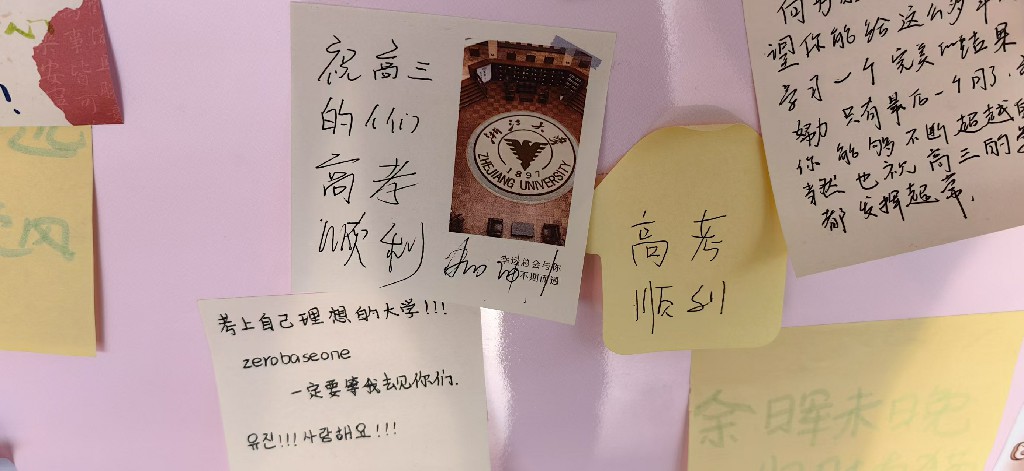 祝高三
的们
高考
顺利
浙江大学
1897
ZHEJIANG UNIVERSITY
总会与你
不期而遇
高考
顺利
望你能给这么多年
学习一个完美的结果
只有最后一个月了
你能够不断超越自
当然也祝高三的学
都发挥超常.
考上自己理想的大学!!!
zerobaseone
一定要等我去见你们.
유진!!! 사랑해요!!!
余晖未晚